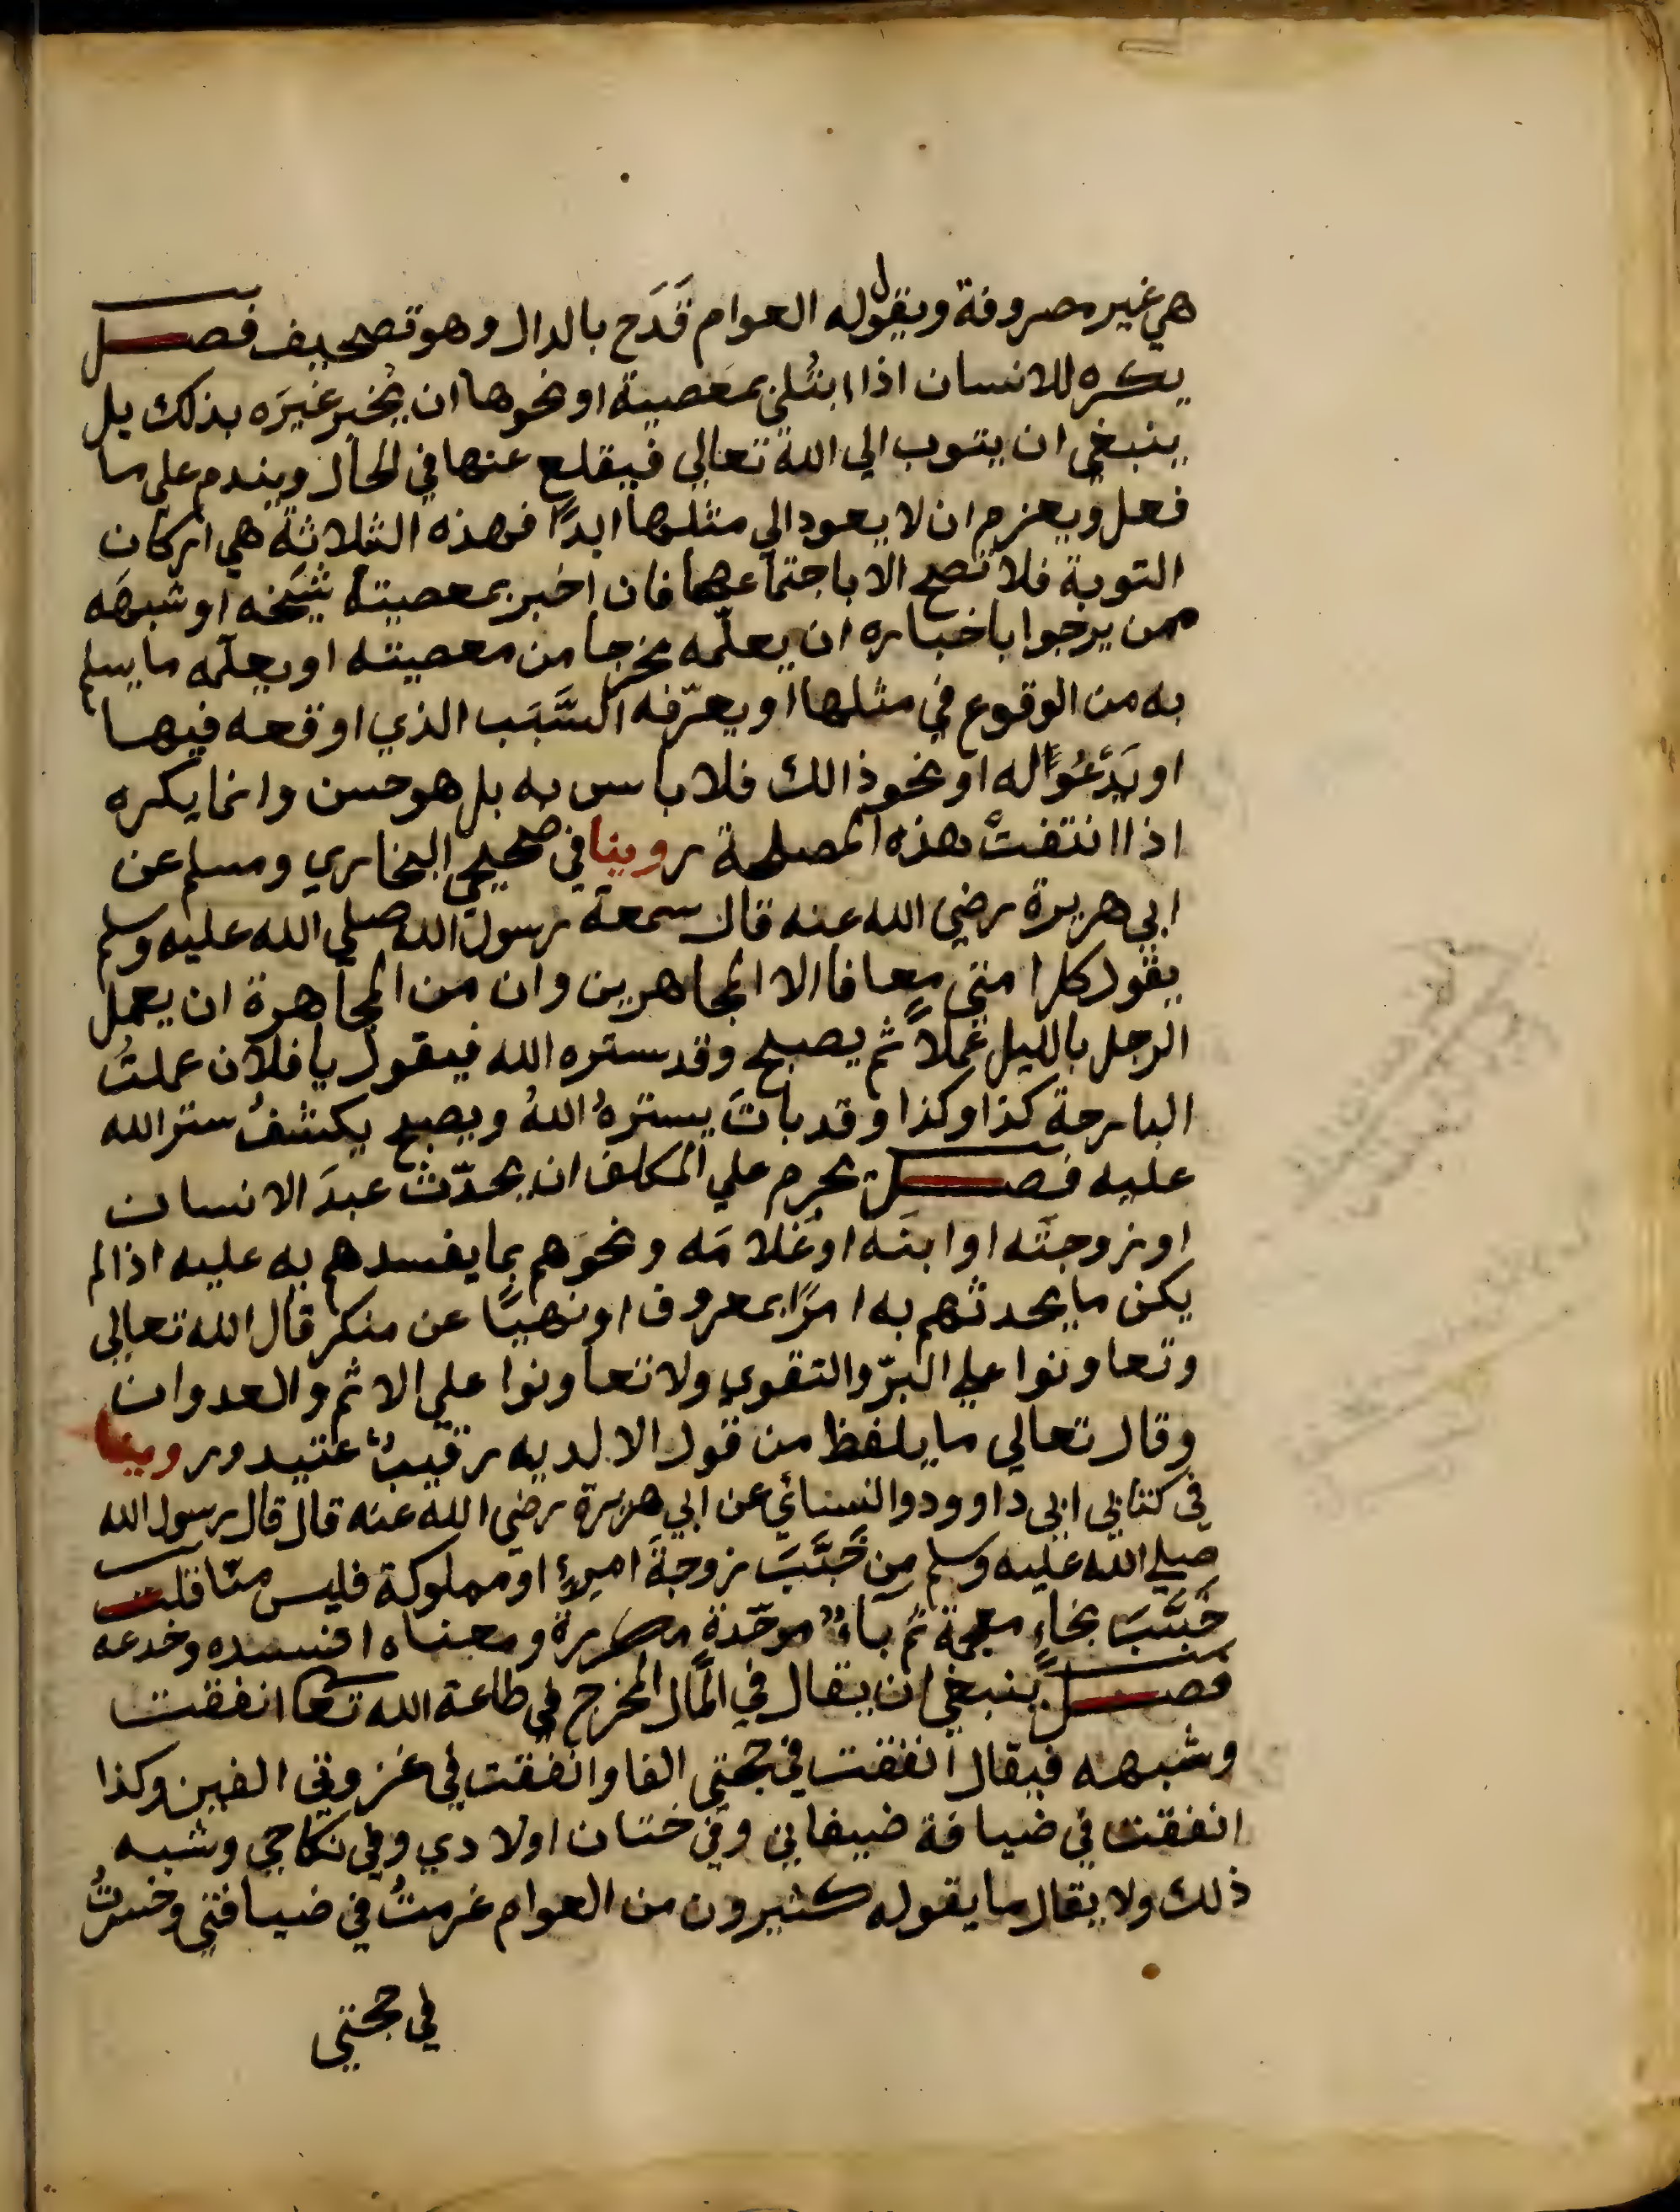 هي غير مصروفة ويقوله العوام قَدَح بالدال وهو تصحيف فصل
يكره للانسان اذا ابتُلى بمعصية او نحوها ان يُخبر غيرَه بذلك بل
ينبغي ان يتوب الي الله تعالي فيقلع عنها في الحال ويندم علي ما
فعل ويعزم ان لا يعود الي مثلها ابدًا فهذه الثلاثة هي اركان
التوبة فلا تصح الا باجتماعها فان اخبر بمعصيته شيخه او شبهَه
ممن يرجوا باخباره ان يعلّمه مخرجا من معصيته او يعلّمه ما يسلم
به من الوقوع في مثلها او يعرّفه السَّبَب الذي اوقعه فيها
او يَدْعُوَا له او نحو ذالك فلا باس به بل هو حسن وانما يكره
اذا انتفتْ هذه المصلحة روينا في صحيحي البخاري ومسلم عن
ابي هريرة رضي الله عنه قال سمعة رسول الله صلي الله عليه وسلم
يقول كل امتي معافا الا المجاهرين وان من المجاهرة ان يعمل
الرجل بالليل عملًا ثم يصبح وقد ستره الله فيقول يا فلان عملتُ
البارحة كذا وكذا وقد باتَ يستره اللهُ ويصبح يكشفُ ستر الله
عليه فصل يحرم علي المكلف ان يحدّث عبدَ الانسان
او زوجتَه او ابنَه او غلامَه ونحوهم بما يفسدهم به عليه اذا لم
يكن ما يحدثهم به امرًا بمعروف او نهيًا عن منكر قال الله تعالي
وتعاونوا علي البرّ والتقوي ولا تعاونوا علي الاثم والعدوان
وقال تعالي ما يلفظ من قول الا لديه رقيبٌ عتيد وروينا
في كتابي ابي داوود والنسائي عن ابي هريرة رضي الله عنه قال قال رسول الله
صلي الله عليه وسلم من خَبَّبَ زوجةَ امرئٍ او مملوكة فليس منّا قلت
خَبَّبَ بخاءٍ معجمة ثم باءٌ موحّدة مكررة ومعناه افسده وخدعه
فصل ينبغي ان يقال في المال المخرج في طاعة الله تعا انفقت
وشبهه فيقال انفقت في حجتي الفا وانفقت في غزوتي الفين وكذا
انفقت في ضيافة ضيفاني وفي ختان اولادي وفي نكاحي وشبه
ذلك ولا يقال ما يقوله كثيرون من العوام غرمتُ في ضيافتي وخسرتُ
في حجتي